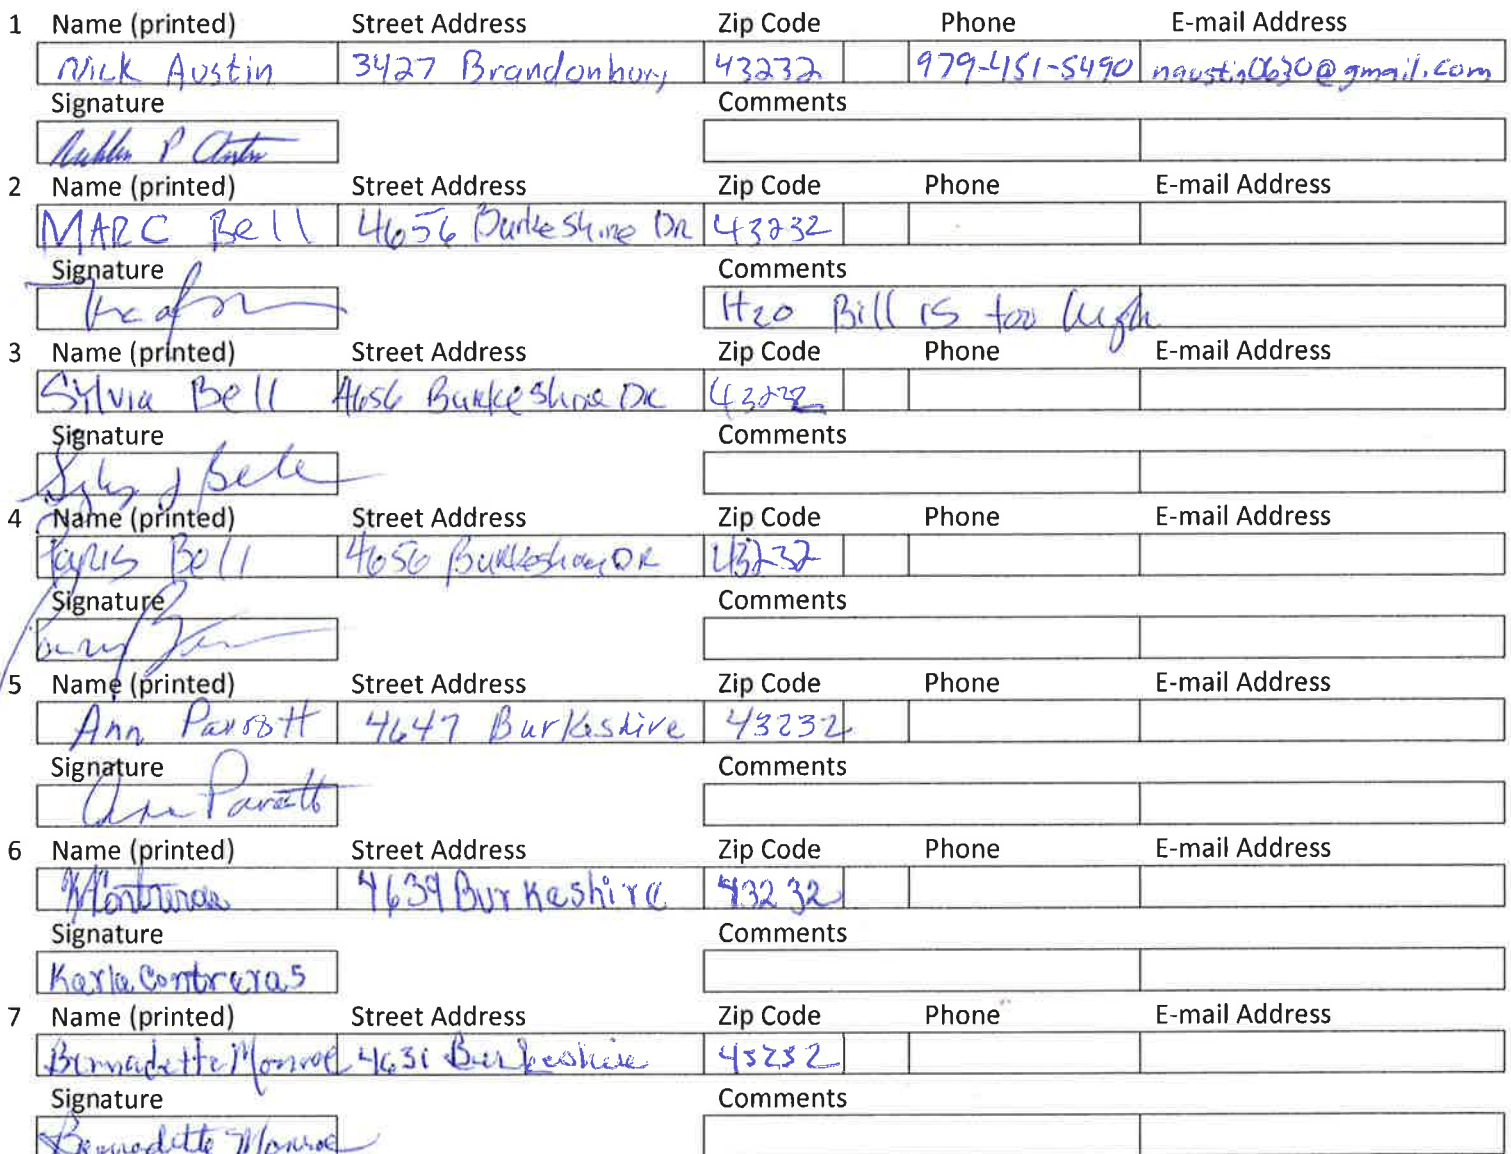 1 Name (printed) Street Address Zip Code Phone E-mail Address
Nick Austin 3427 Brandonbury 43232 979-451-5490 naustin0630@gmail.com
Signature Comments
2 Name (printed) Street Address Zip Code Phone E-mail Address
MARC Bell 4656 Burkeshire DR 43232
Signature Comments
H20 Bill is too high
3 Name (printed) Street Address Zip Code Phone E-mail Address
Sylvia Bell 4656 Burkeshire DR 43232
Signature Comments
4 Name (printed) Street Address Zip Code Phone E-mail Address
Bell 4656 DR 43232
Signature Comments
5 Name (printed) Street Address Zip Code Phone E-mail Address
Ann Parrott 4647 Burkeshire 43232
Signature Comments
Ann Parrott
6 Name (printed) Street Address Zip Code Phone E-mail Address
KContreras 4639 Burkeshire 43232
Signature Comments
Karla Contreras
7 Name (printed) Street Address Zip Code Phone E-mail Address
Bernadette Monroe 4631 Burkeshire 43232
Signature Comments
Bernadette Monroe